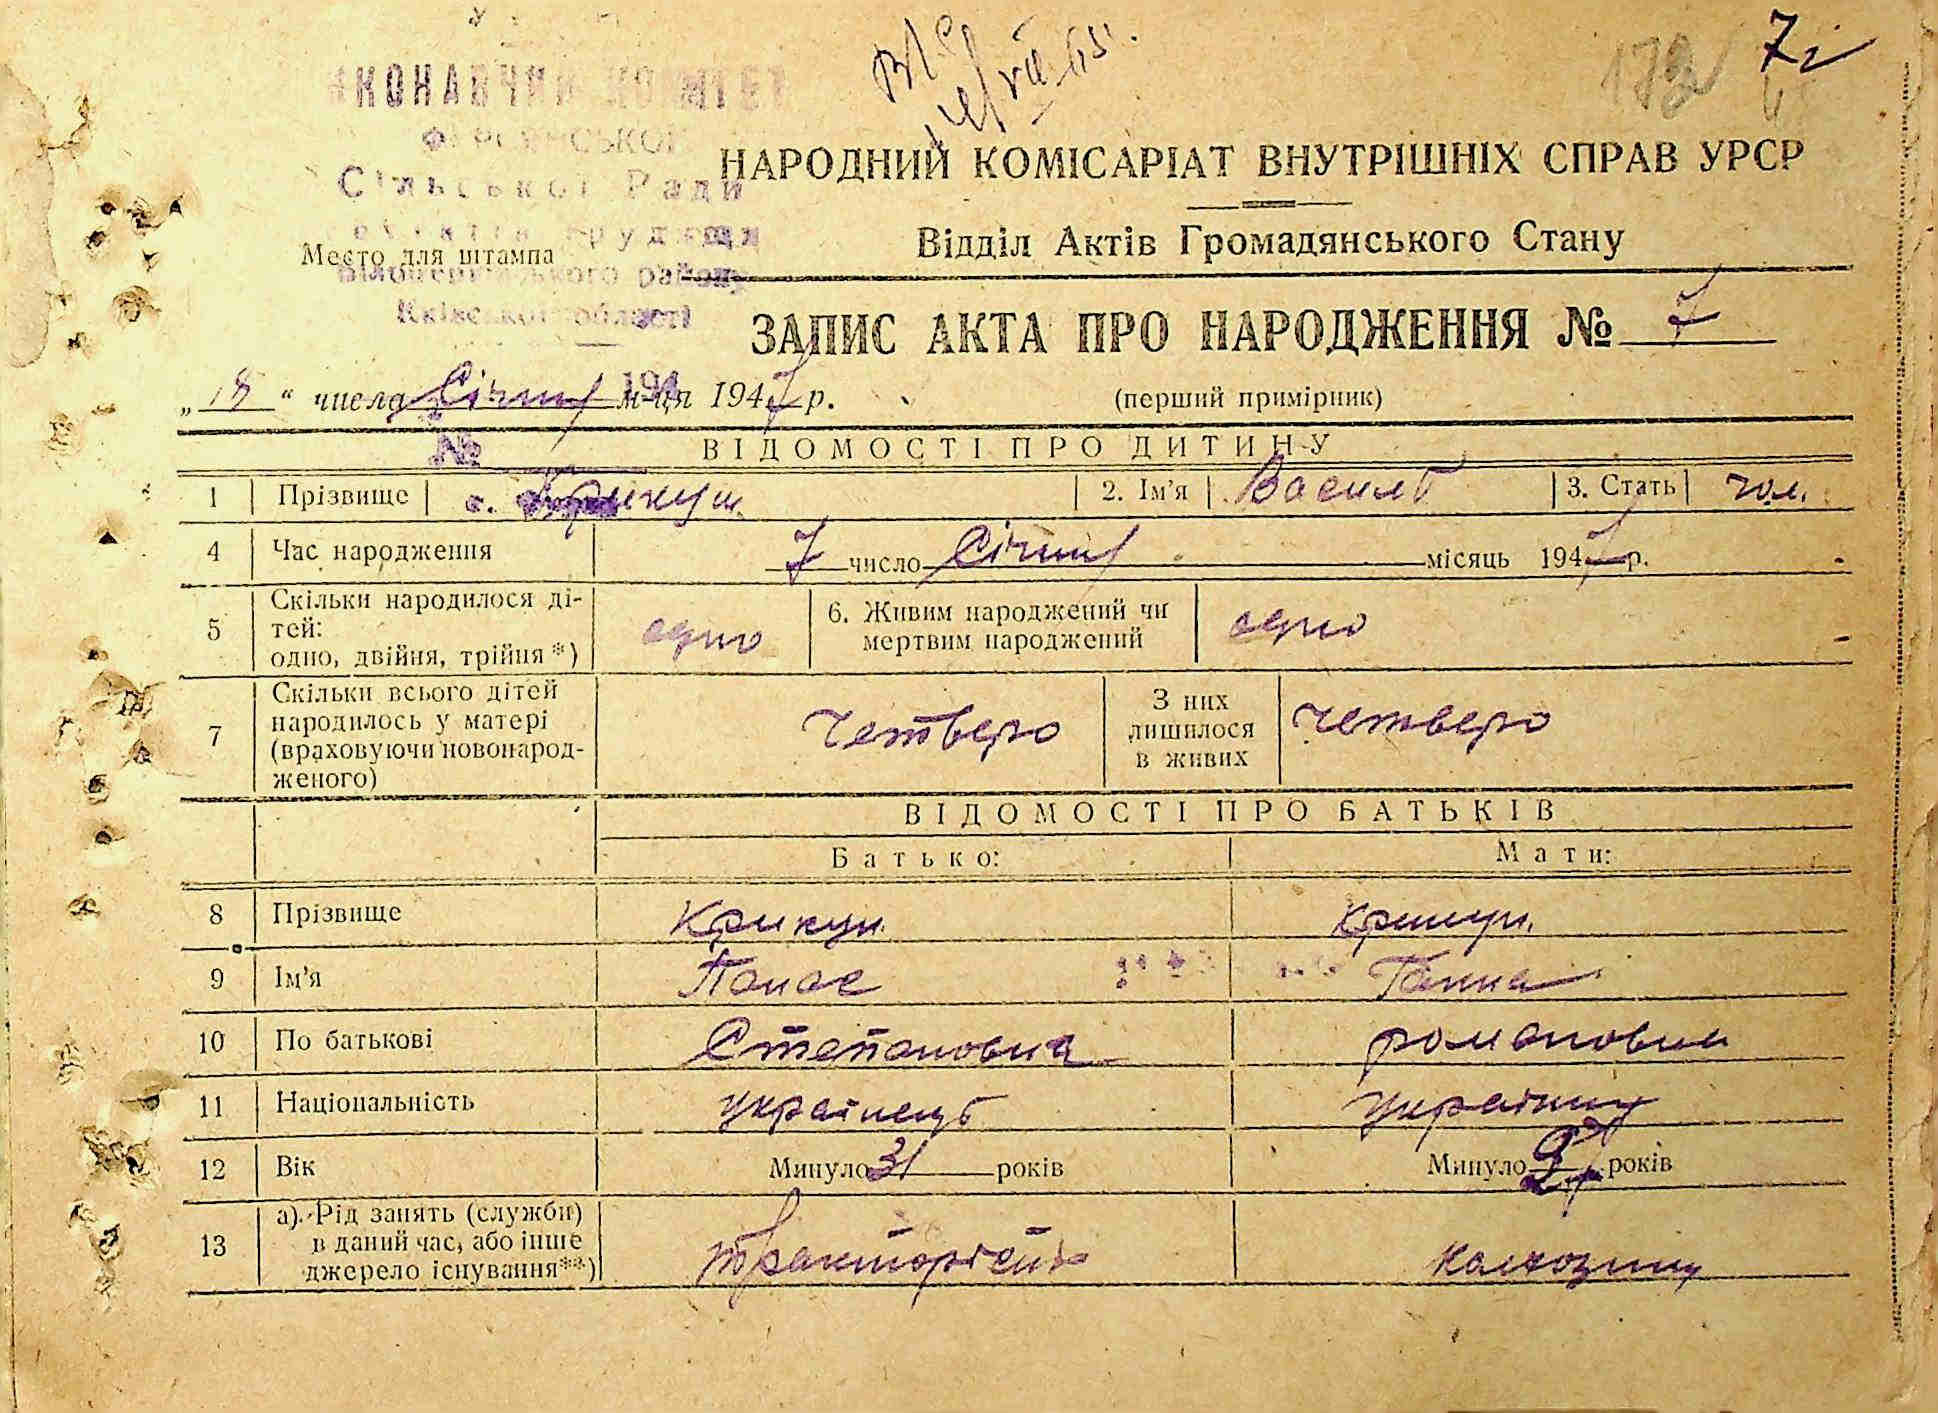 ВІС
7
НАРОДНИЙ КОМІСАРІАТ ВНУТРІШНІХ СПРАВ УРСР
Сільської Ради
Відділ Актів Громадянського Стану
Место для штампа
району
Київської області
ЗАПИС АКТА ПРО НАРОДЖЕННЯ № 7
„18“ числа Січня м-ця 1947 р. (перший примірник)
№ ВІДОМОСТІ ПРО ДИТИНУ
1 Прізвище Крикун 2. Ім'я Василь 3. Стать чол.
4 Час народження 7 число Січня місяць 1947 р.
5 Скільки народилося ді-
тей:
одно, двійня, трійня *) одно 6. Живим народжений чи
мертвим народжений одно
7 Скільки всього дітей
народилось у матері
(враховуючи новонарод-
женого) Четверо З них
лишилося
в живих четверо
ВІДОМОСТІ ПРО БАТЬКІВ
Батько: Мати:
8 Прізвище Крикун Крикун
9 Ім'я Панас Ганна
10 По батькові Степанович романовна
11 Національність українець українка
12 Вік Минуло 31 років Минуло років
13 а). Рід занять (служби)
в даний час, або інше
джерело існування**) тракторість колхозниця